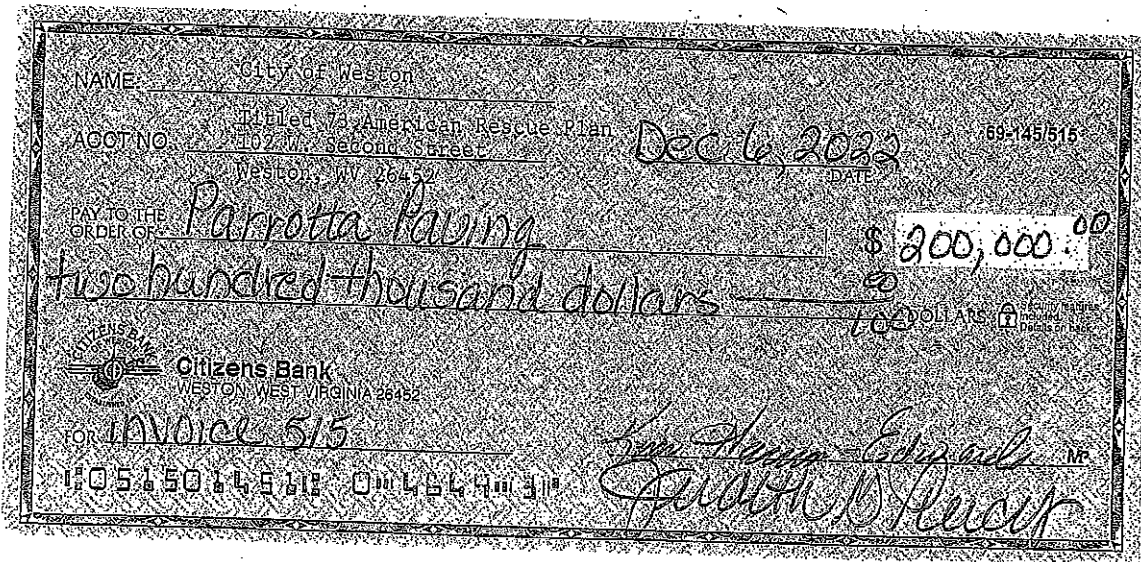 NAME City of Weston
ACCT NO. Titled 73 American Rescue Plan
102 W. Second Street
Weston, WV 26452
Dec 6, 2022
DATE
69-145/515
PAY TO THE ORDER OF Parrotta Paving $ 200,000.00
two hundred thousand dollars 00/100 DOLLARS
Security features included. Details on back.
CITIZENS BANK
Citizens Bank
WESTON, WEST VIRGINIA 26452
FOR invoice 515
Edwards MP
Judith D